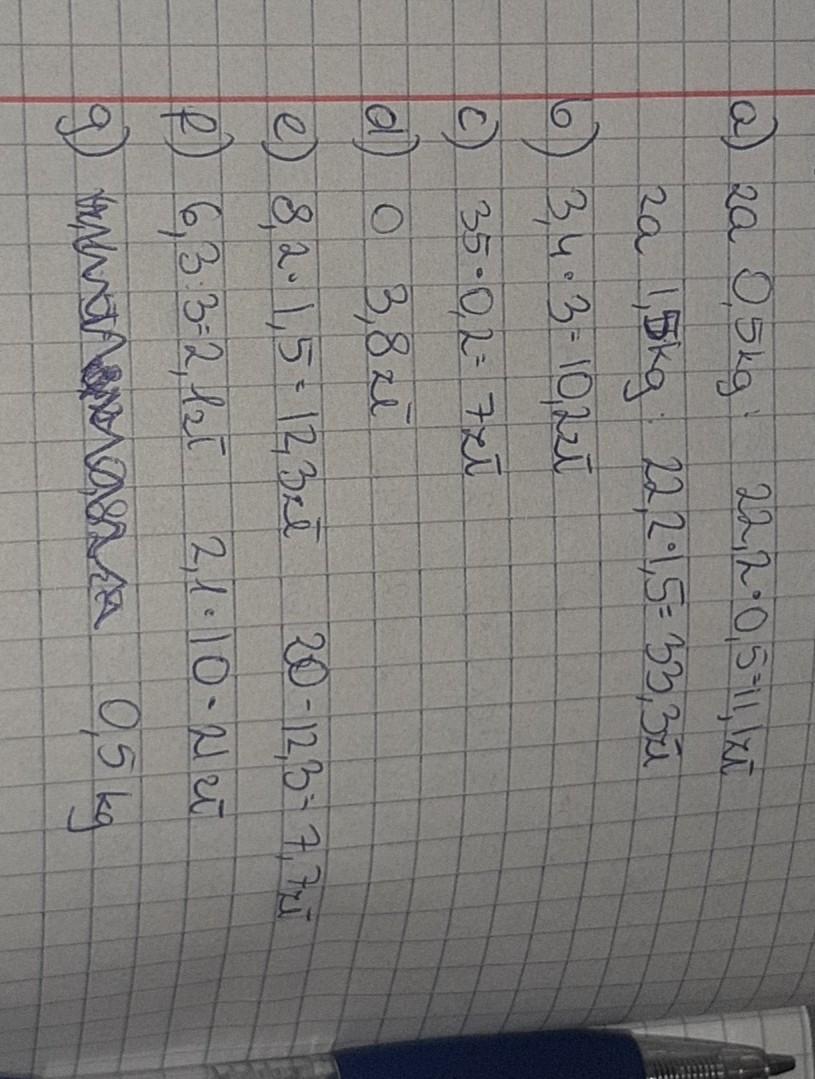 a) za 0,5kg: 22,2·0,5=11,1zł
za 1,5kg: 22,2·1,5=33,3zł
b) 3,4·3=10,2zł
c) 35·0,2=7zł
d) O 3,8zł
e) 8,2·1,5=12,3zł 20-12,3=7,7zł
f) 6,3:3=2,1zł 2,1·10=21zł
g) 0,5kg